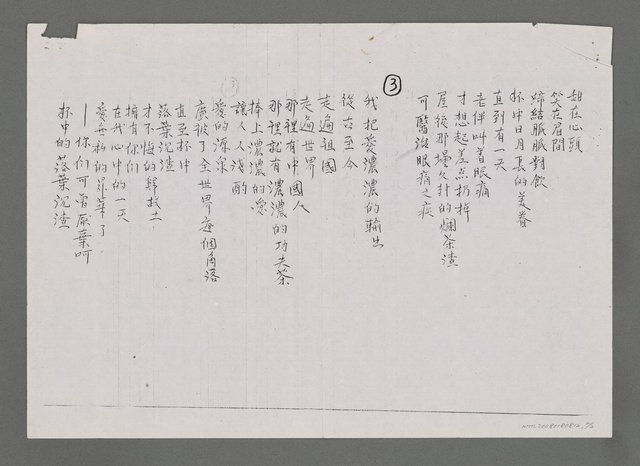 甜在心頭
笑在眉間
締結脈脈對飲
杯中日月長的美眷
直到有一天
老伴叫着眼痛
才想起差点扔掉
屋後那堆久封的爛茶渣
可醫治眼痛之疾
③
我把愛濃濃的輸出
從古至今
走遍祖國
走遍世界
那裡有中國人
那裡就有濃濃的功夫茶
捧上濃濃的愛
讓人人淺酌
愛的源泉
廣被了全世界每個角落
直至杯中
落葉沉渣
才不悔的歸故土
擁有你們
在我心中的一天
愛無私的昇華了
—你們可曾厭棄呵
杯中的落葉沉渣